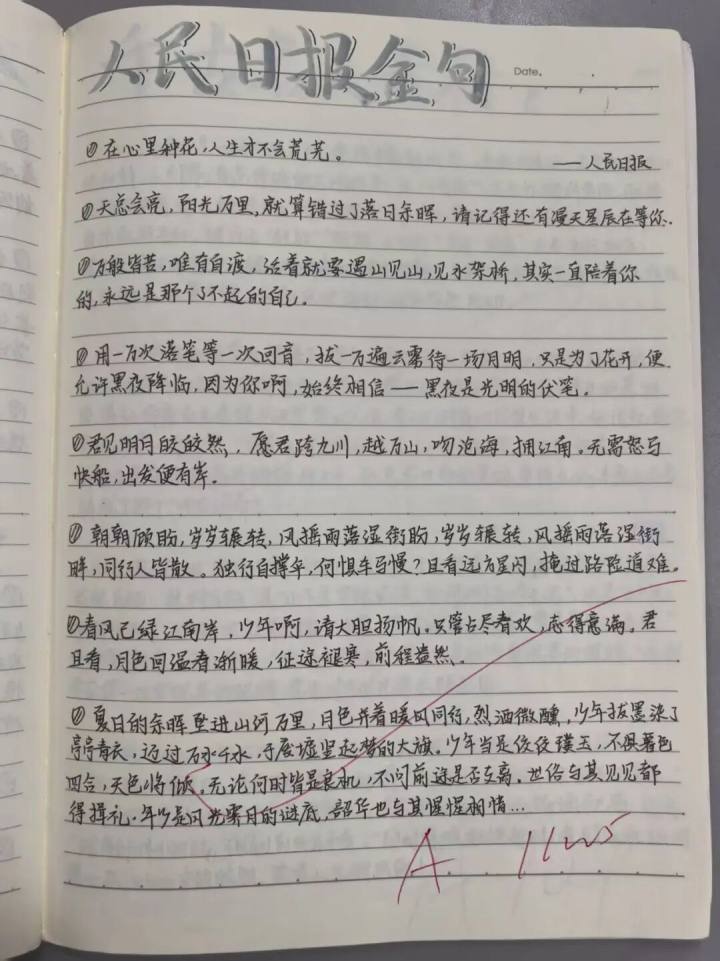 人民日报金句
Date.
①在心里种花,人生才不会荒芜。
——人民日报
①天总会亮,阳光万里,就算错过了落日余晖,请记得还有漫天星辰在等你.
①万般皆苦,唯有自渡,活着就要遇山见山,见水架桥,其实一直陪着你
的,永远是那个了不起的自己.
①用一万次落笔等一次回音,拔一万遍云雾待一场月明,只是为了花开,便
允许黑夜降临,因为你啊,始终相信——黑夜是光明的伏笔。
①君见明月皎皎然,愿君跨九川,越万山,吻沧海,拥江南。无需怒马
快船,出发便有岸。
①朝朝顾盼,岁岁辗转,风摇雨落湿街盼,岁岁辗转,风摇雨落湿街
畔,同行人皆散。独行自撑伞,何惧车马慢?且看远方星闪,掩过路险道难。
①春风已绿江南岸,少年啊,请大胆扬帆。只管占尽春欢,志得意满。君
且看,月色回温春渐暖,征途褪寒,前程盎然.
①夏日的余晖坠进山河万里,月色并着暖风同行,烈酒微醺,少年拔墨染了
亭亭青衣,迈过万水千水,于废墟竖起梦的大旗。少年当是佼佼璞玉,不畏暮色
四合,天色将倾,无论何时皆是良机,不问前途是否支离。世俗与其见见都
得揖礼.年少是风光霁月的谜底,韶华也与其惺惺相惜...
A